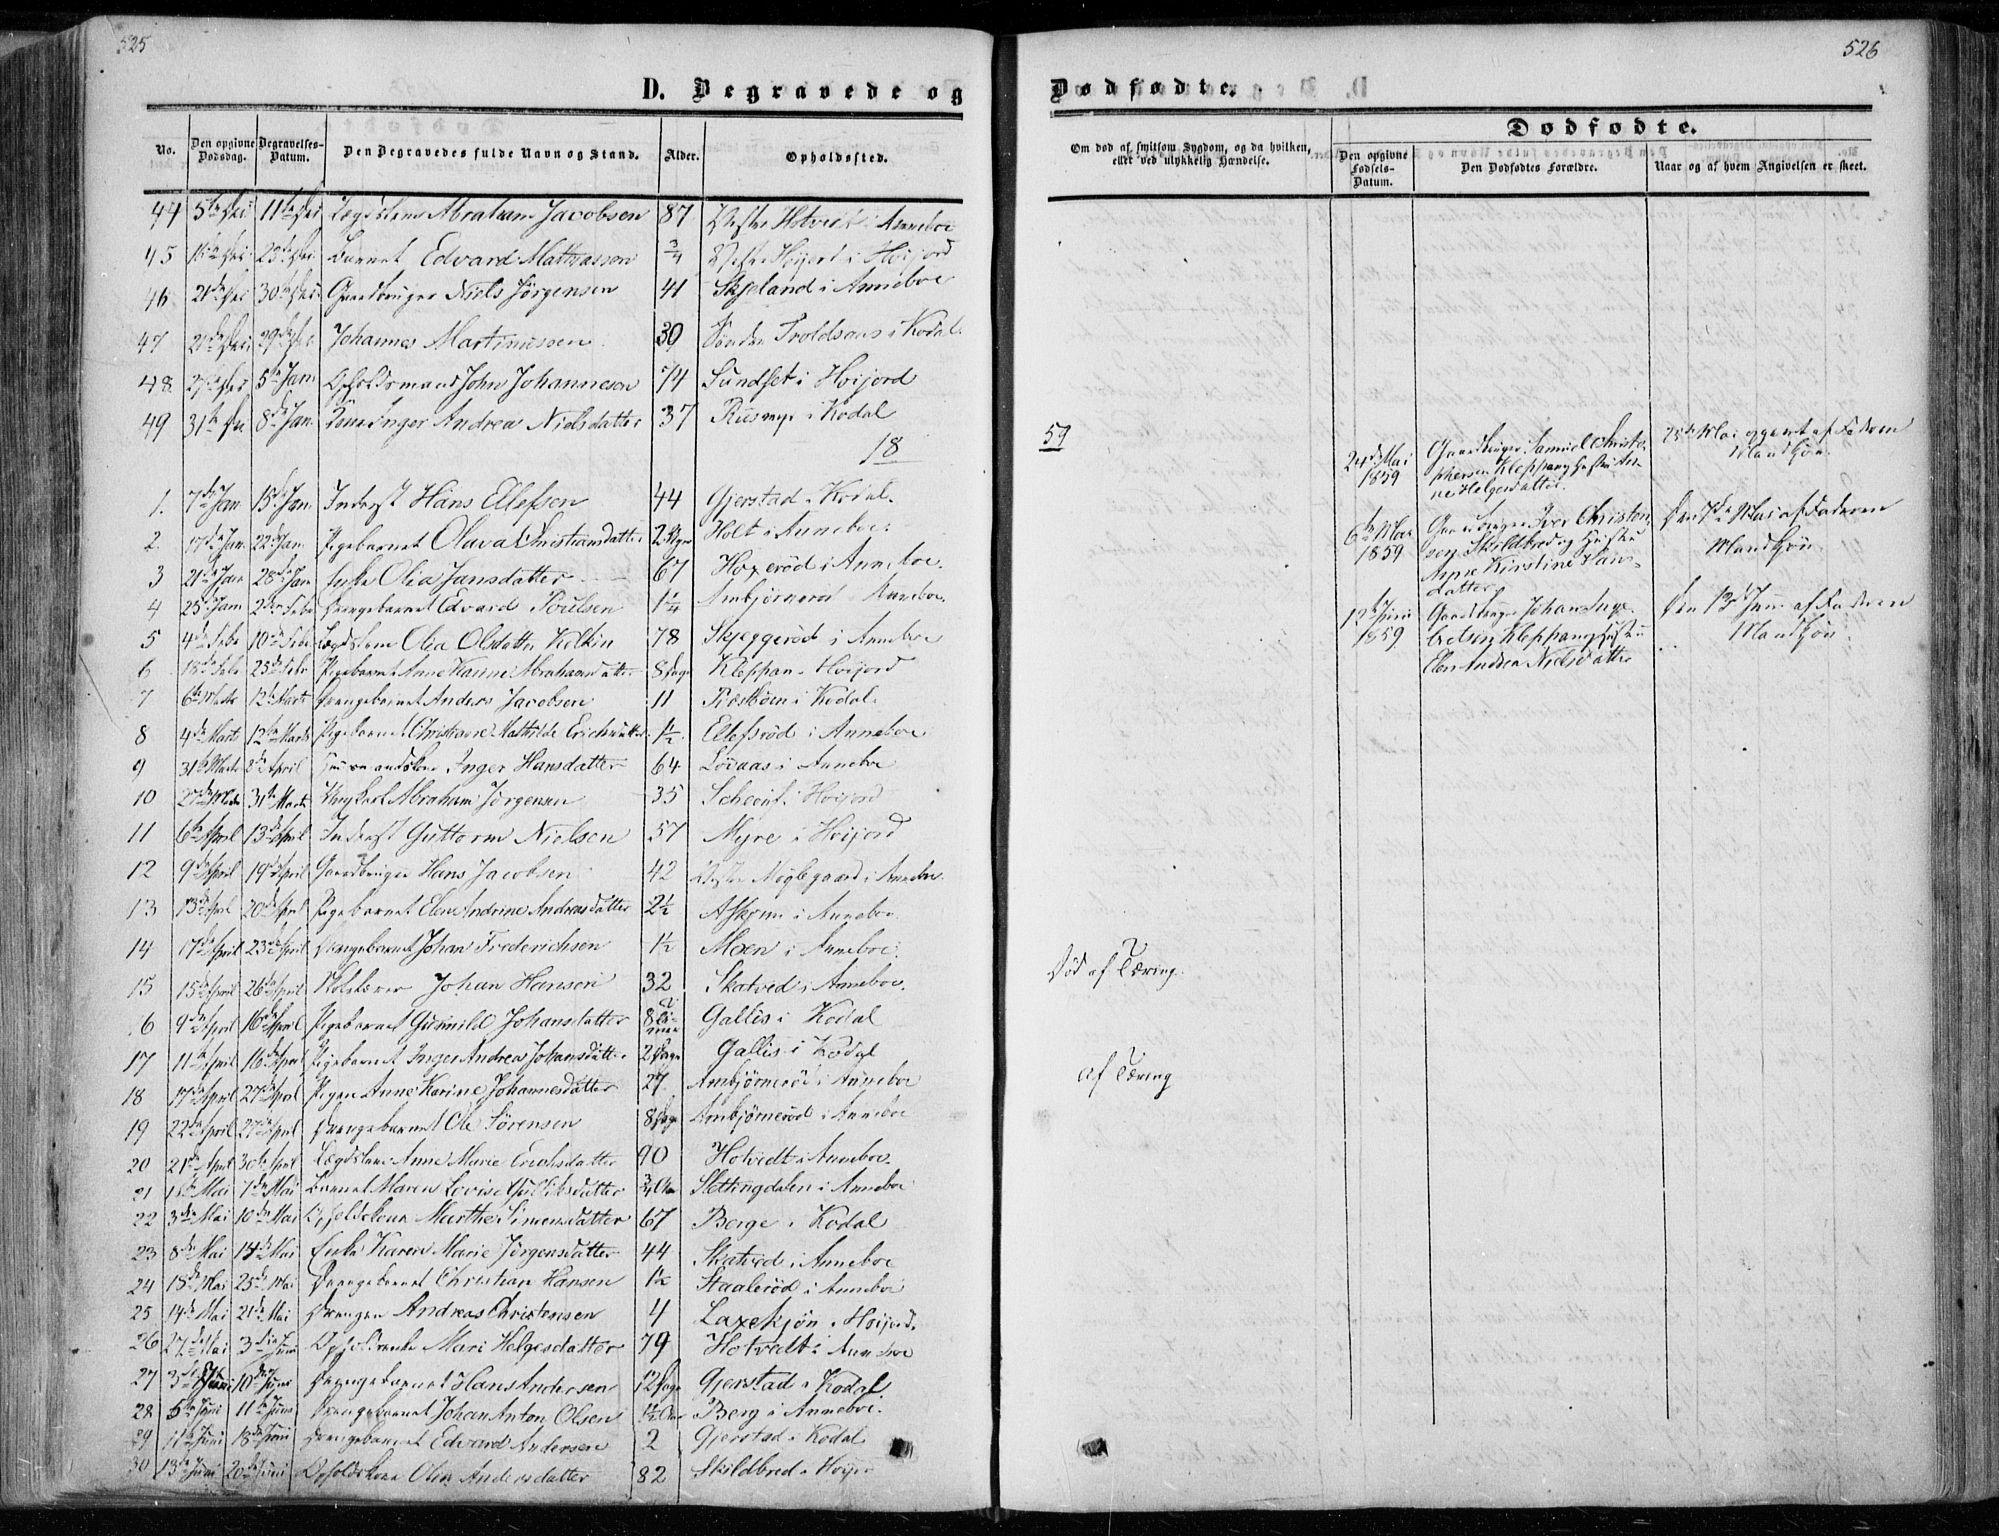 525
D. Begravede og
No. Den opgivne Dødsdag. Begravelses-Datum. Den Begravedes fulde Navn og Stand. Alder. Opholdssted.
44 5te 11te Lægdslem Abraham Jacobsen 87 Vestre Hotvedt i Anneboe
45 Barnet Edvard Mathiassen 3/4 Høijord i Høijord
46 21de 30te Gaardbruger Niels Jørgensen 41 Skjeland i Anneboe
47 29de Johannes Martinussen 39 Søndre Troldsaas i Kodal.
48 27de 5te Jan. Opholdsmand John Johannesen 74 Sundset i Høijord
49 31te 8de Jan. Inger Andrea Nielsdatter 37 Rusmyr i Kodal
18
1. 7de Jan 15de Jan. Inderst Hans Ellefsen 44 Gjerstad i Kodal.
2. 17de Jan 22de Jan. Pigebarnet Olava Christiansdatter 2 Holt i Anneboe.
3 21de Jan 28de Jan Enke Olia Jansdatter 67 Hoxerød i Anneboe.
4 25de Jan 2den Febr Drengebarnet Edvard Poulsen 1 1/4 Ambjørnerød i Anneboe.
5 4de Febr 10de Febr Lægdslem Olea Olsdatter 78 Skjeggerød i Anneboe
6 18de Febr 25de Febr Pigebarnet Anne Karine Abrahamsdatter 8 Dage Kleppan i Høijord
7 6te Marts 12te Marts Drengebarnet Anders Jacobsen 11 i Kodal.
8 4de Marts 12te Marts Pigebarnet Christiane Mathilde Erichsdatter 1 1/2 Ellefsrød i Anneboe
9 31te Marts 8de April Inger Hansdatter 64 Løvaas i Anneboe
10 27de Marts 31te Marts Ungkarl Abraham Jørgensen 35 i Høijord
11 6te April 13de April Inderst Guttorm Nielsen 57 Myre i Høijord
12 9de April 19de April Gaardbruger Hans Jacobsen 42 Vestre Møglegaard i Anneboe.
13 13de April 20de April Pigebarnet Elen Andrine Andreasdatter 2 1/2 Askjum i Anneboe.
14 17de April 23de April Drengebarnet Johan Frederichsen 1 1/2 Moen i Anneboe.
15 15de April 26de April Skolelærer Johan Hansen 32 Skatved i Anneboe.
16 9de April 16de April Pigebarnet Gunnild Johansdatter 8 Timer Gallis i Kodal
17 11te April 16de April Pigebarnet Inger Andrea Johansdatter 2 Dage Gallis i Kodal
18 17de April 27de April Pigen Anne Karine Johannesdatter 27 Ambjørnerød i Anneboe
19 22de April 27de April Drengebarnet Ole Sørensen 8 Dage Ambjørnerød i Anneboe
20 21de April 30te April Lægdslem Anne Marie Erichsdatter 90 Hotvedt i Anneboe.
21 1ste Mai 7de Mai Barnet Maren Lovise 3/4 Aar Slettingdalen i Anneboe
22 3die Mai 10de Mai Opholdskone Marthe Simensdatter 67 Berge i Kodal
23 8de Mai 14de Mai Enke Karen Marie Jørgensdatter 44 Skatved i Anneboe
24 18de Mai 25de Mai Drengebarnet Christian Hansen 1 1/2 Staalerød i Anneboe
25 14de Mai 21de Mai Drengen Andreas Christensen 4 Laxekjøn i Høijord.
26 27de Mai 3die Juni Opholdsenke Mari Helgesdatter 79 Hotvedt i Anneboe
27 3die Juni 10de Juni Drengebarnet Hans Andersen 12 Dage Gjerstad i Kodal.
28 5te Juni 11te Juni Drengebarnet Johan Anton Olsen 1 1/2 Aar Berg i Anneboe.
29 11te Juni 18de Juni Drengebarnet Edvard Andersen 2 Gjerstad i Kodal
30 13de Juni 20de Juni Opholdskone Olea Andersdatter 82 Skildbred i Høijor
526
Dødfødte.
Om død af smitsom Sygdom, og da hvilken, eller ved ulykkelig Hændelse.
Dødfødte.
Den opgivne Fødsels-Datum. Den Dødfødtes Forældre. Naar og af hvem Angivelsen er skeet.
59
24de Mai 1859 Gaardbruger Samuel Christophersen Kleppan og Hustru Anne Helgesdatter. 25de Mai opgivet af Faderen Mandkjøn.
6te Mai 1859 Gaardbruger Iver Christensen Skildbred og Hustru Anne Kirstine Larsdatter Den 7de Mai af Faderen Mandkjøn
12te Juni 1859 Gaardbruger Johan Ingebretsen Kleppan og Hustru Elen Andrea Nielsdatter Den 13de Juni af Faderen Mandkjøn
Død af Tæring.
af Tæring